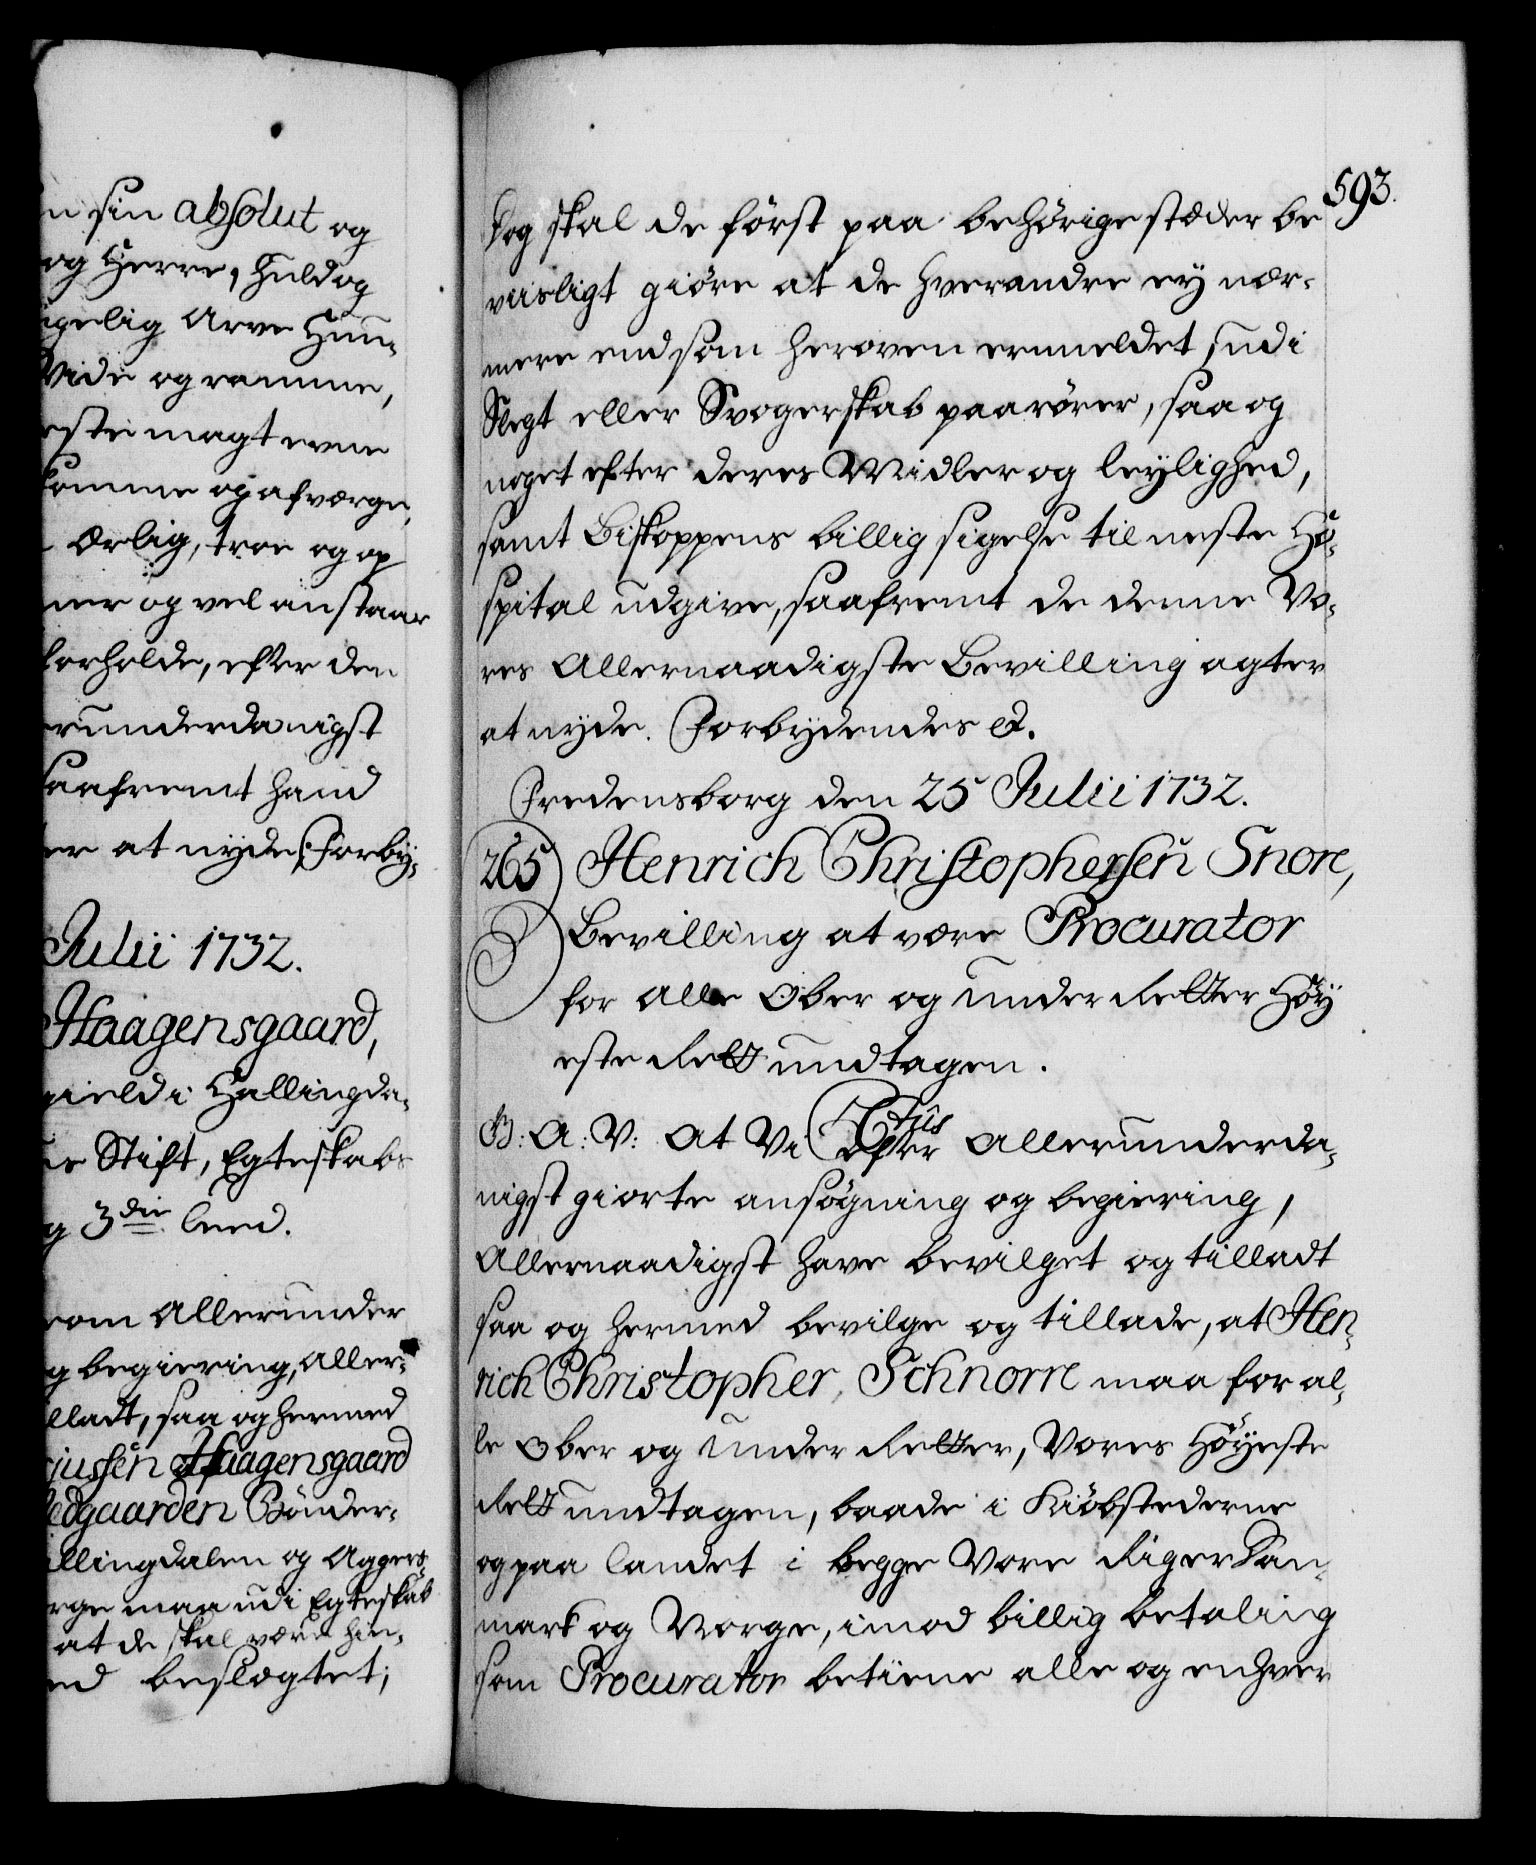 n sin absolut og
og Herre, huld og
igelig Arve Huu-
Vide og ramme,
este magt evne
komme og afværge,
Ærlig, troe og op
ner og vel anstaar
forholde, efter den
erunderdanigst
saafremt hand
ter at nyde. Forby-
Julii 1732.
Haagensgaard,
gield i Hallingda-
us Stift, Egteskabs
g 3die leed.
som Allerunder
g begiering, Aller-
lladt, saa og hermed
jussen Haagensgaard
edgaarden Bönder-
allingdalen og Aggers-
orge maa udi Egteskab
at de skal være hin-
ed beslægtet;
593.
Dog skal de först paa behörige stæder be
viisligt giöre at de hverandre ey nær-
mere end som heroven ermeldet, udi
Slegt eller Svogerskab paarörer, saa og
noget efter deres Midler og leylighed,
samt Biskoppens billig sigelse til neste Ho-
spital udgive, saafremt de denne Vo-
res Allernaadigste Bevilling agter
at nyde. Forbydendes &.
Fredensborg den 25 Julii 1732.
265 Henrich Christophersen Snore,
Bevilling at være Procurator
for alle Ober og under Retter Höy
este Rett undtagen.
G: A: V: At Vi efter Allerunderda-
nigst giorte ansögning og begiering,
Allernaadigst have bevilget og tilladt
saa og hermed bevilge og tillade, at Hen-
rich Christopher Schnorre maa for al-
le Ober og under Retter, Vores Höyeste
Rett undtagen, baade i Kiöbstederne
og paa landet i begge Vore Riger Dan-
mark og Norge, imod billig betaling
som Procurator betiene alle og enhver